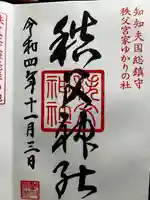 知知夫国総鎮守
秩父宮家ゆかりの社
秩父神社
令和四年十一月三日